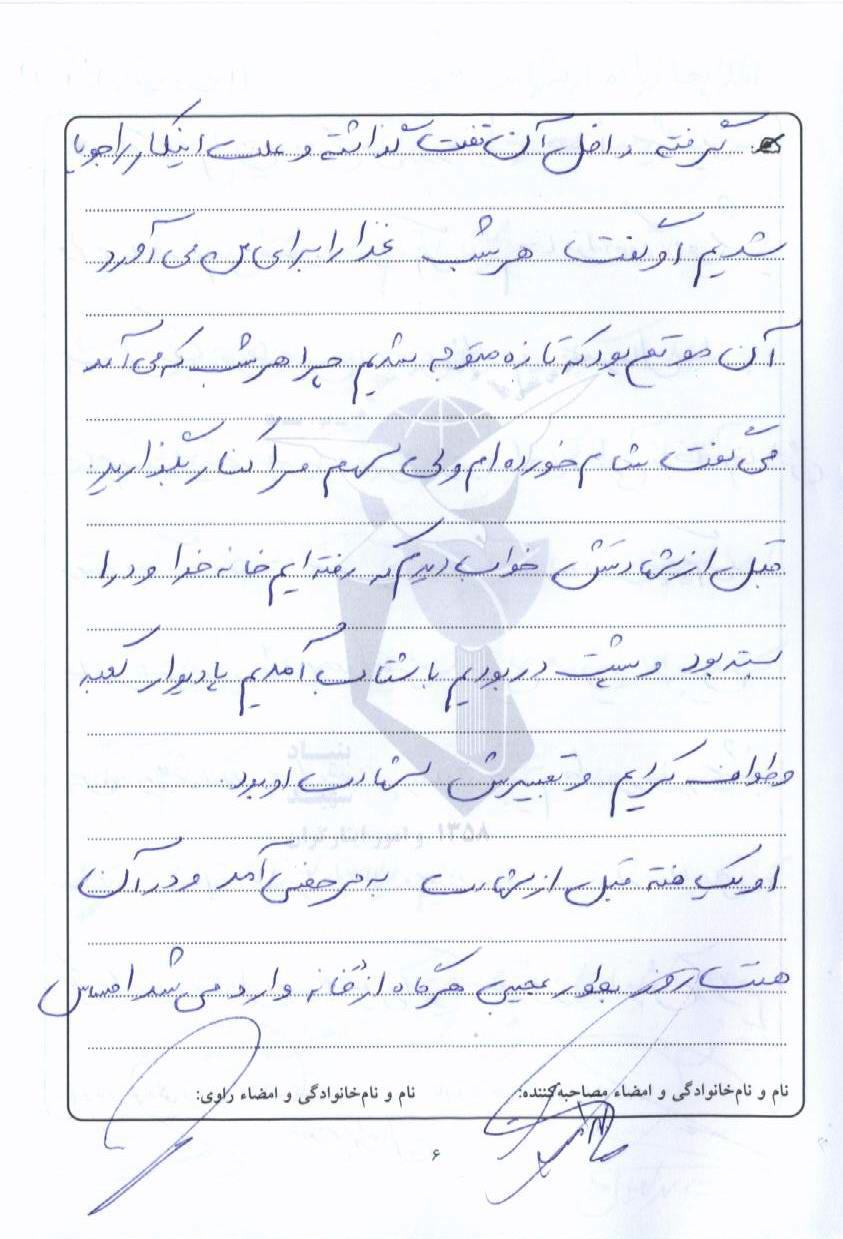 گرفته داخل آن تفت گذاشته و علت اینکار را جویا
شدیم او گفت هر شب غذا را برای من می آورد
آن موقع بود که تازه متوجه شدیم چرا هر شب که می آمد
می گفت شام خورده ام ولی سهم مرا کنار بگذارید.
قبل از شهادتش خواب دیدم که رفته ایم خانه خدا و در را
بسته بود و پشت در بودیم با شتاب آمدیم پا دیوار کعبه
و طواف کردیم و تعبیرش شهادت او بود.
او یک هفته قبل از شهادت به مرخصی آمد و در آن
هفت روز بطور عجیبی هرگاه از خانه وارد می شد احساس
نام و نام‌خانوادگی و امضاء مصاحبه‌کننده:
نام و نام‌خانوادگی و امضاء راوی:
۶
بنیاد
شهید
و امور ایثارگران
۱۳۵۸